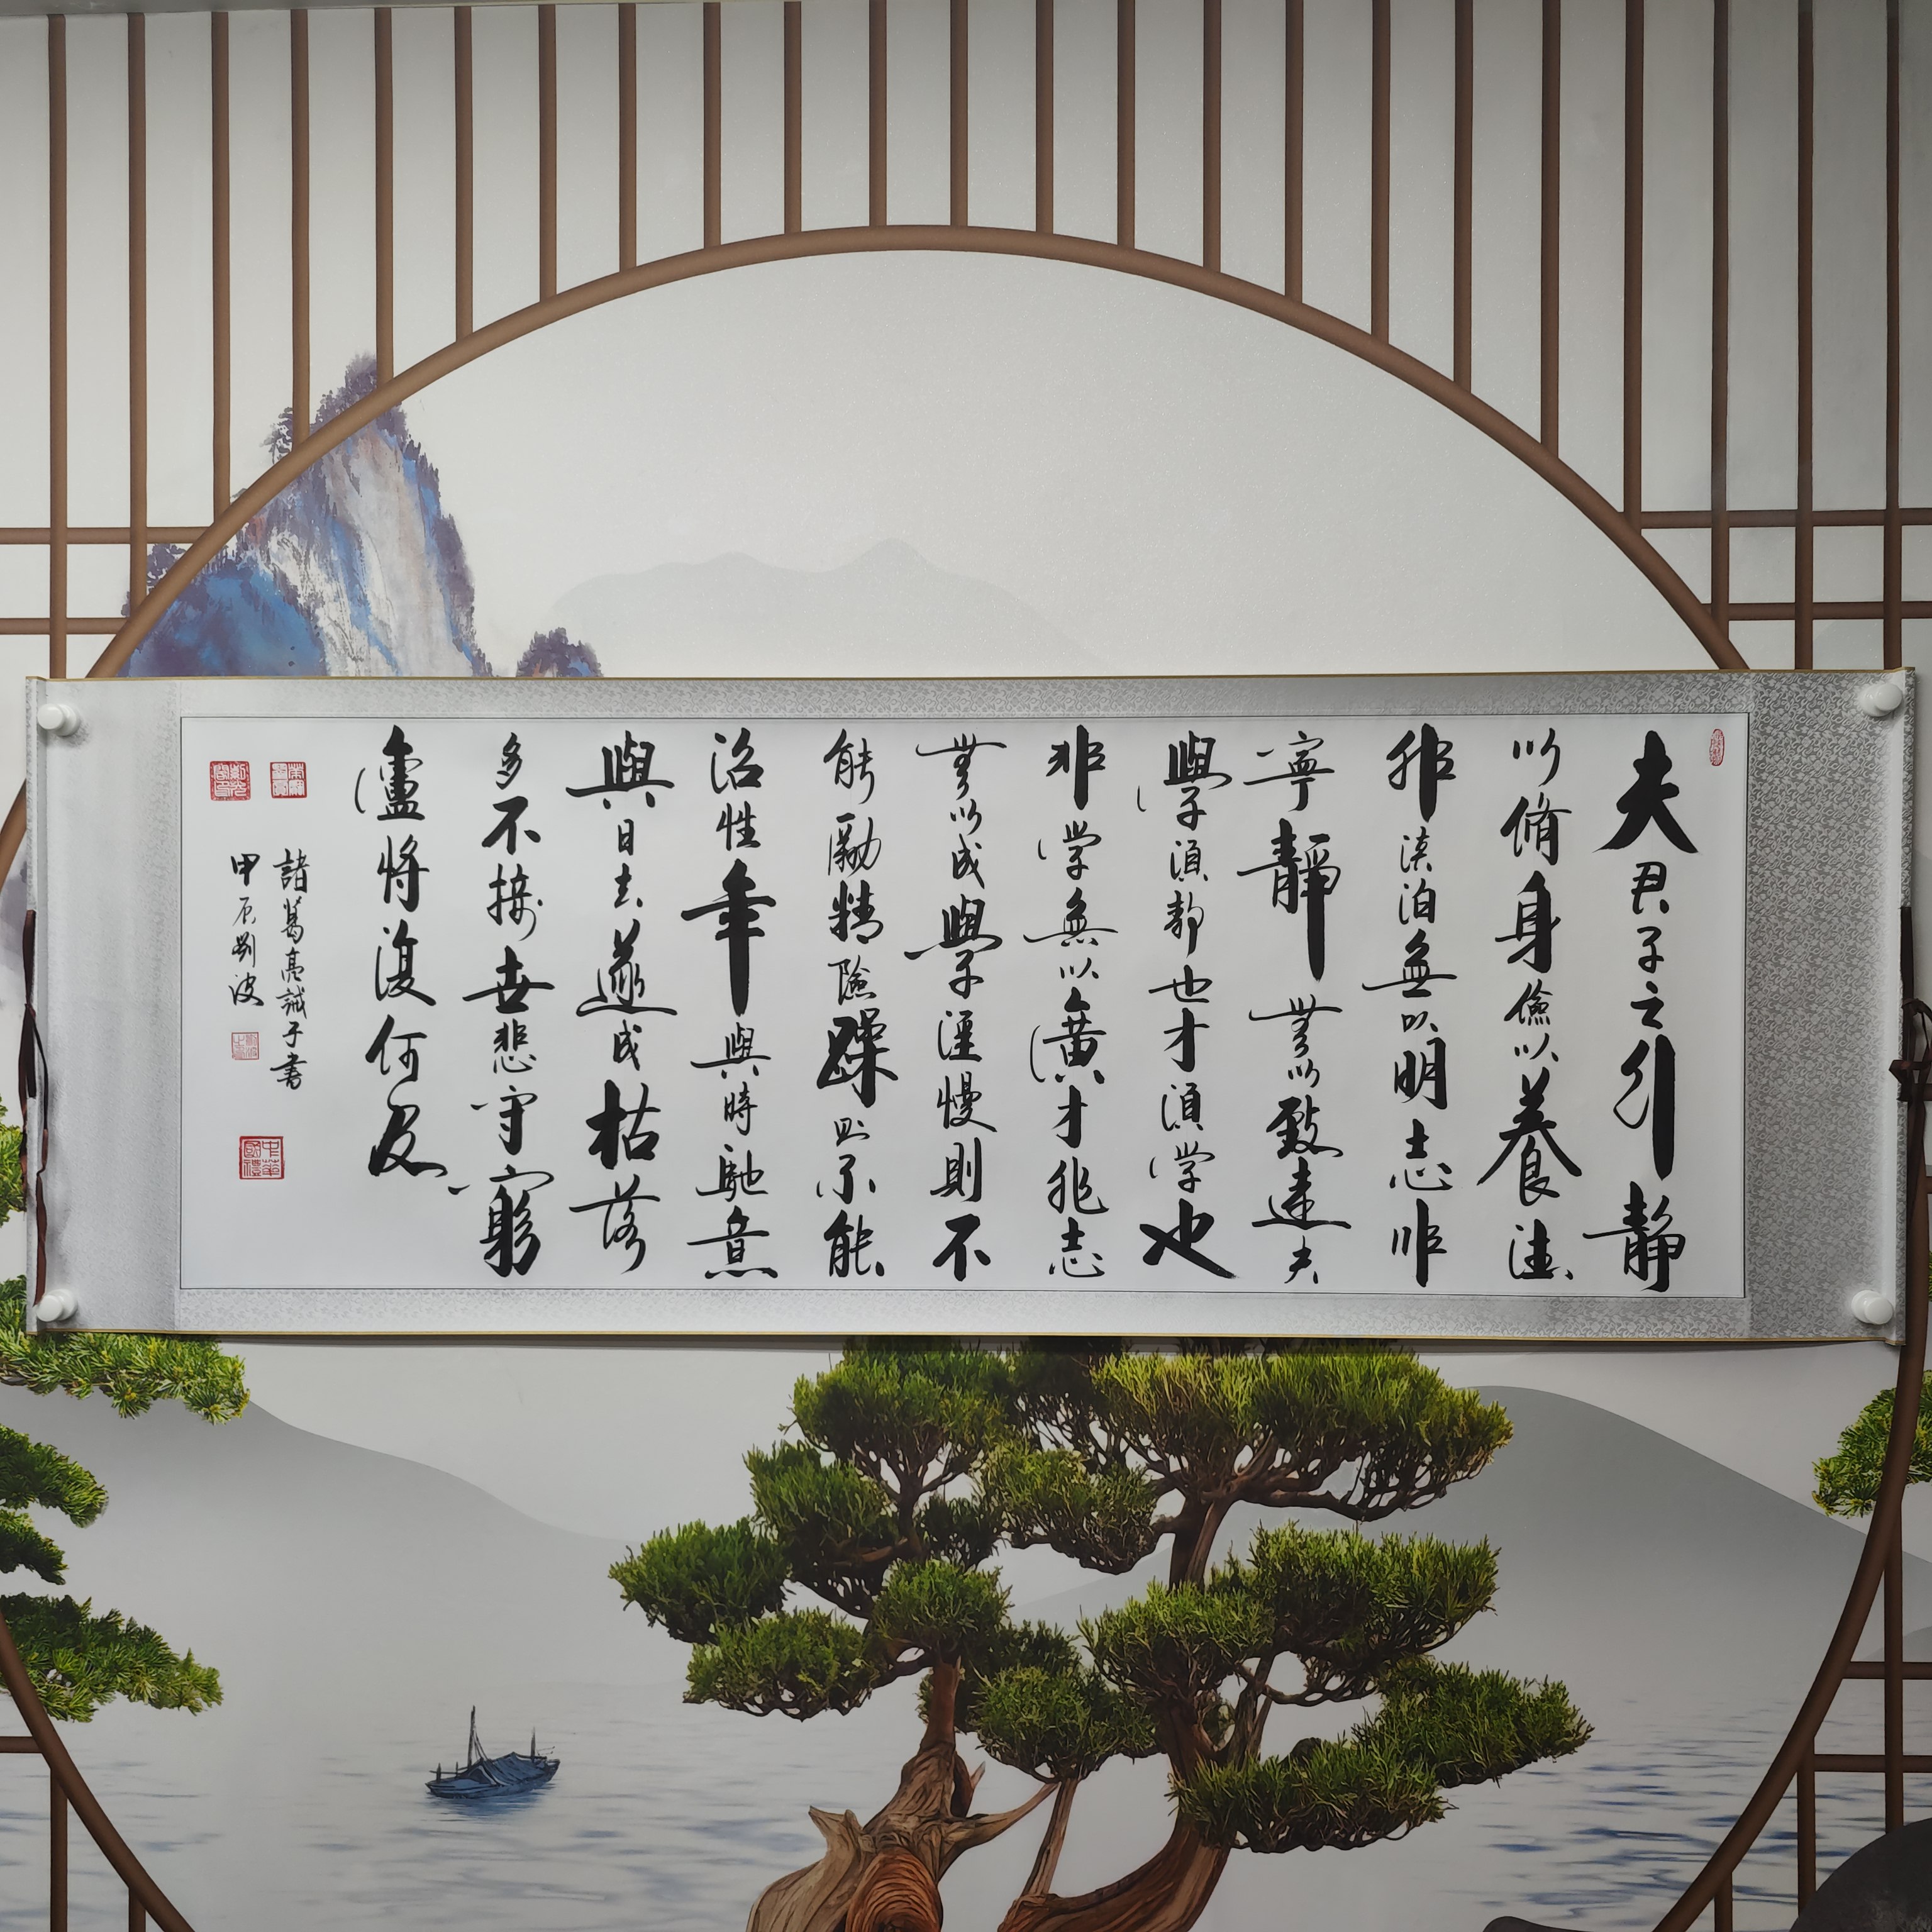 夫君子之引静
以脩身儉以養德
非淡泊無以明志非
寧靜無以致遠夫
學須静也才須学也
非学無以廣才非志
無以成學淫慢則不
能勵精險躁則不能
治性年與時馳意
與日去遂成枯落
多不接世悲守窮
廬將復何及
諸葛亮誡子書
甲辰劉波
中華國禮